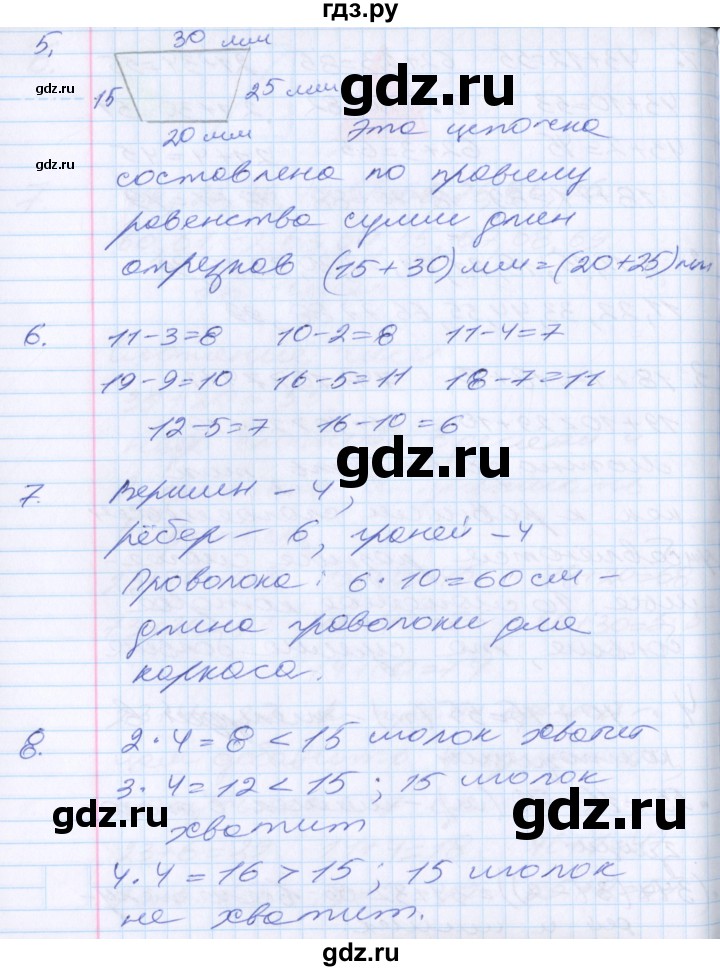 гдз.ру
5.
30 мм
gdz.ru
15
25 мм
gdz.ru
20 мм
Эта цепочка
gdz.ru
составлена по правилу
равенства сумм длин
отрезков (15+30) мм = (20+25) мм
6.
11-3=8 10-2=8 11-4=7
19-9=10 16-5=11 18-7=11
12-5=7 16-10=6
gdz.ru
7.
Вершин – 4,
рёбер – 6, граней – 4
Проволока: 6·10=60 см –
длина проволоки для
каркаса.
8.
2·4=8<15 иголок хватит
3·4=12<15; 15 иголок
gdz.ru
gdz.ru
хватит
4·4=16>15; 15 иголок
не хватит.
gdz.ru